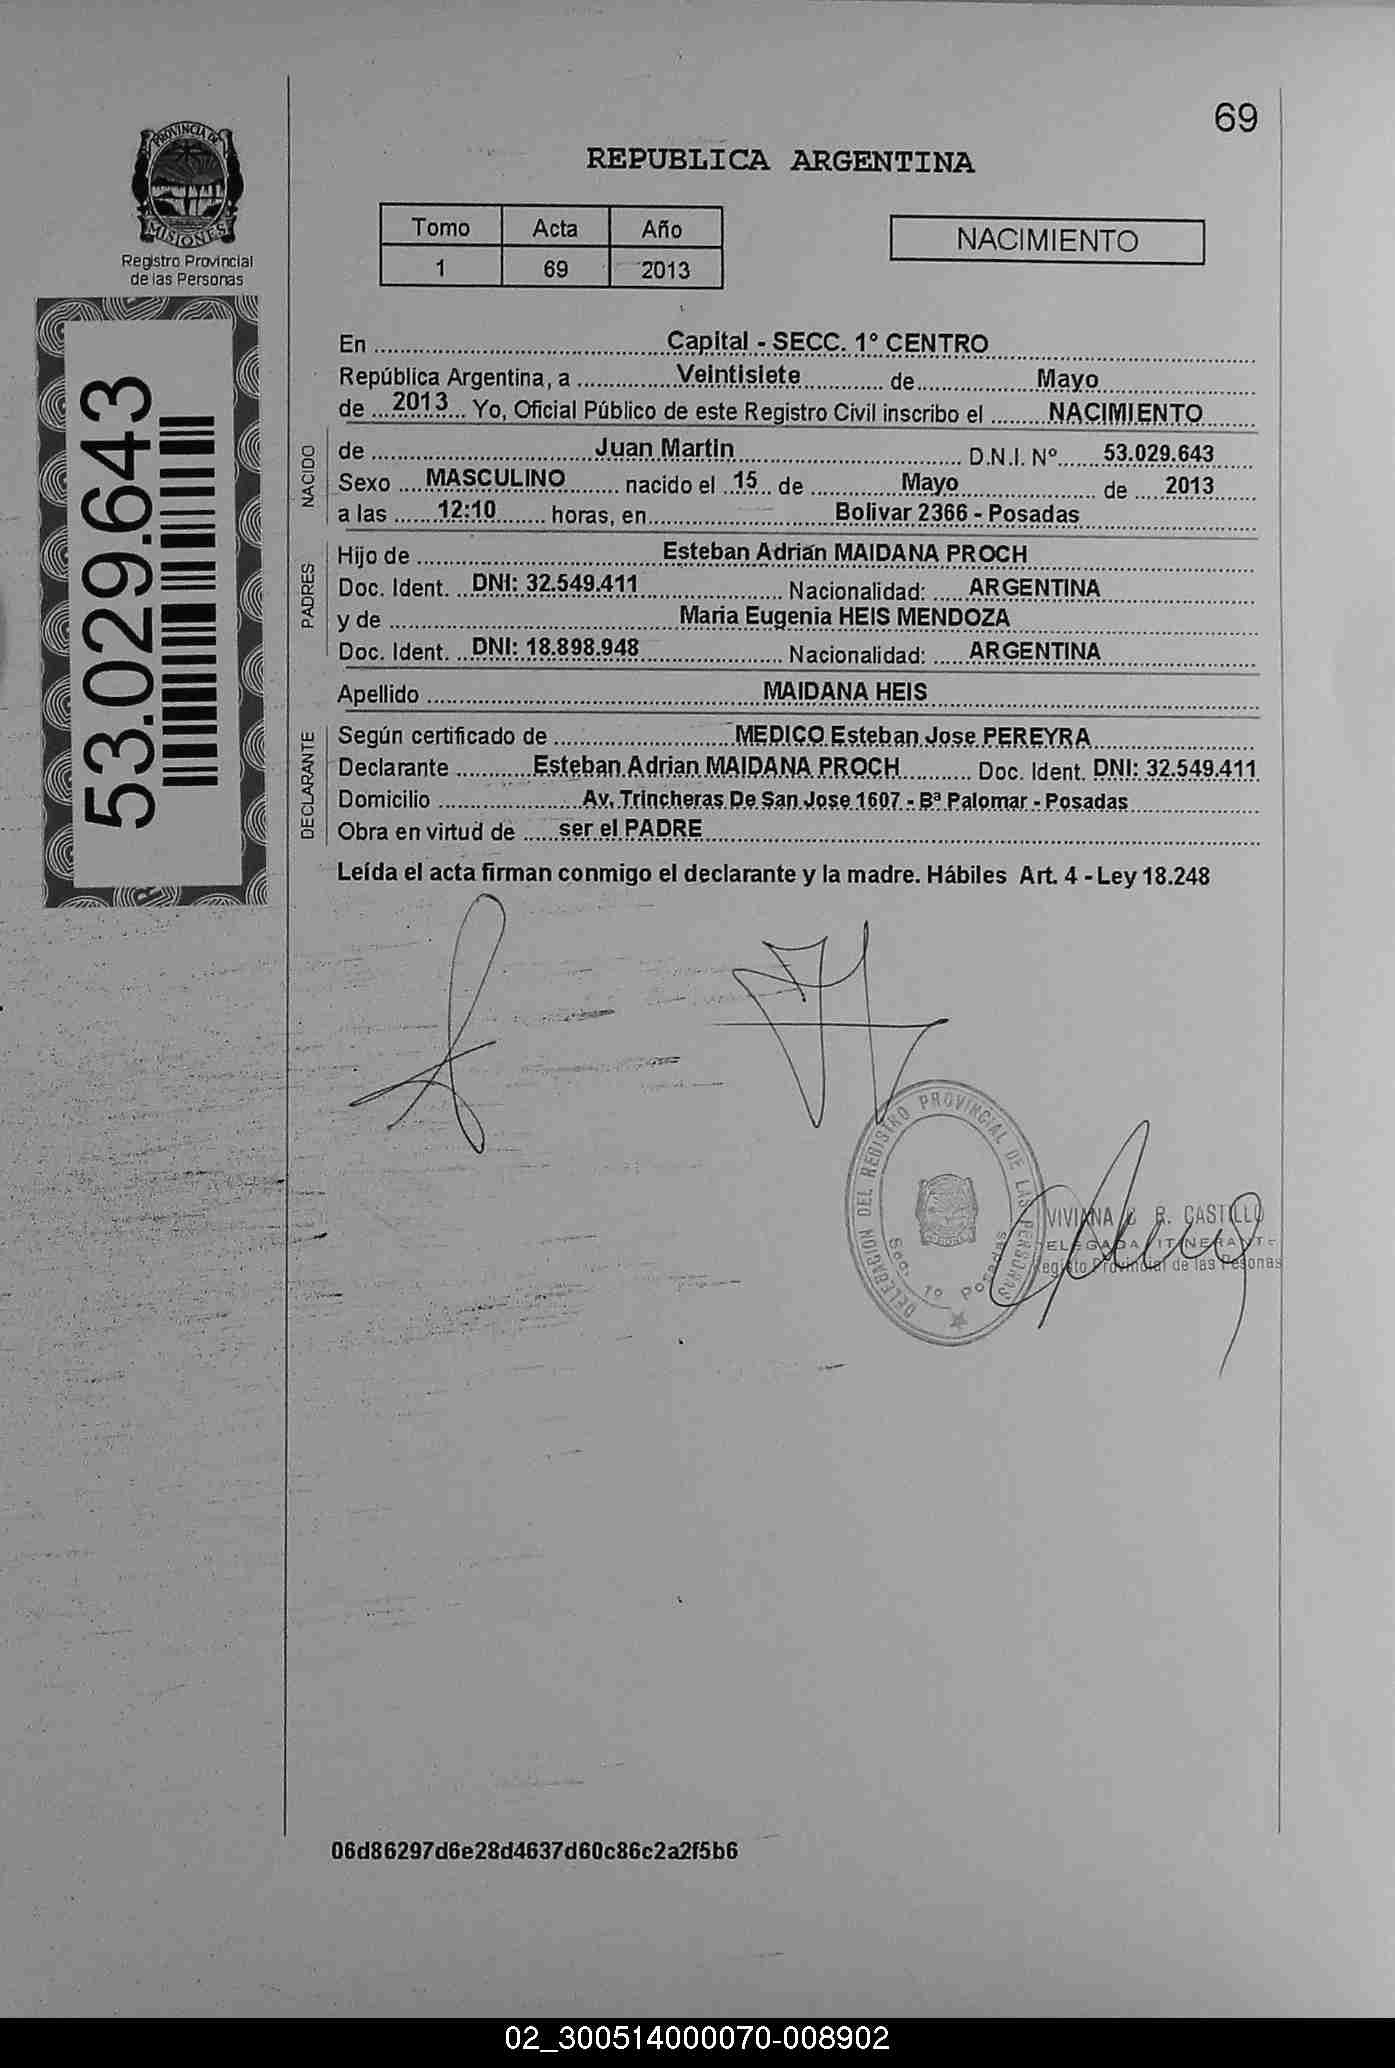 69
PROVINCIA DE
MISIONES
Registro Provincial
de las Personas
REPUBLICA ARGENTINA
Tomo Acta Año
1 69 2013
NACIMIENTO
53.029.643
En Capital - SECC. 1° CENTRO
República Argentina, a Veintisiete de Mayo
de 2013 Yo, Oficial Público de este Registro Civil inscribo el NACIMIENTO
NACIDO
de Juan Martin D.N.I. Nº 53.029.643
Sexo MASCULINO nacido el 15 de Mayo de 2013
a las 12:10 horas, en Bolivar 2366 - Posadas
PADRES
Hijo de Esteban Adrian MAIDANA PROCH
Doc. Ident. DNI: 32.549.411 Nacionalidad: ARGENTINA
y de Maria Eugenia HEIS MENDOZA
Doc. Ident. DNI: 18.898.948 Nacionalidad: ARGENTINA
Apellido MAIDANA HEIS
DECLARANTE
Según certificado de MEDICO Esteban Jose PEREYRA
Declarante Esteban Adrian MAIDANA PROCH Doc. Ident. DNI: 32.549.411
Domicilio Av. Trincheras De San Jose 1607 - Bª Palomar - Posadas
Obra en virtud de ser el PADRE
Leída el acta firman conmigo el declarante y la madre. Hábiles Art. 4 - Ley 18.248
DELEGACION DEL REGISTRO PROVINCIAL DE LAS PERSONAS
Sec. 1º Posadas
VIVIANA R. CASTILLO
DELEGADA ITINERANTE
Registo Provincial de las Pesonas
06d86297d6e28d4637d60c86c2a2f5b6
02_300514000070-008902